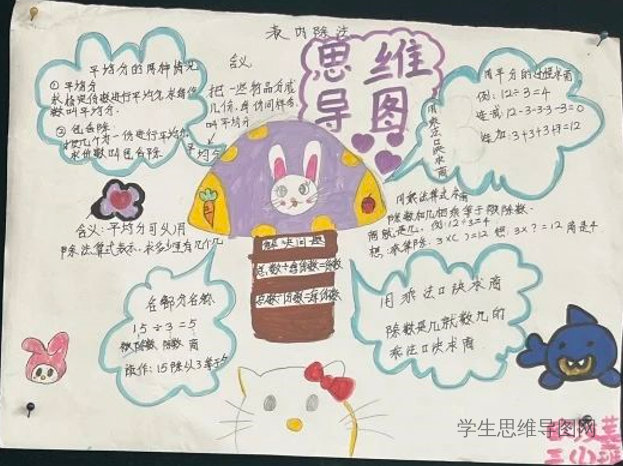 表内除法
思维
导图
平均分的两种情况
① 平均分
数叫平均分.
② 包含除.
把几个为一份进行平均分.
求份数叫包含除.
含义
把一些物品分成
几份,每份同样多
叫平均分
平均分
用平均分的过程求商
例: 12÷3=4
连减: 12-3-3-3-3=0
连加: 3+3+3+3=12
用乘法口诀求商
用乘法算式求商
除数和几相乘等于被除数.
商就是几. 例: 12÷3=4
想: 乘算除. 3×( )=12 想 3×?=12 商是4
含义: 平均分可以用
除法算式表示.
解决问题
总数÷每份数=份数
总数÷份数=每份数
各部分名称
15÷3=5
被除数 除数 商
读作: 15除以3等于5
用乘法口诀求商
除数是几就数几的
乘法口诀求商
学生思维导图网